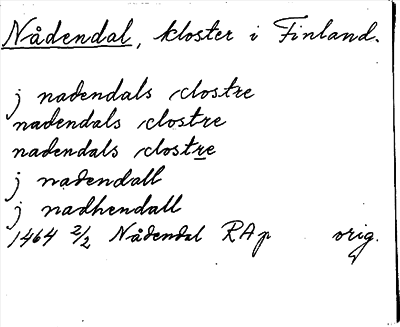 Nådendal, kloster i Finland.
j nadendals clostre
nadendals clostre
nadendals clostre
j nadendall
j nadhendall
1464 2/2 Nådendal RAp orig.